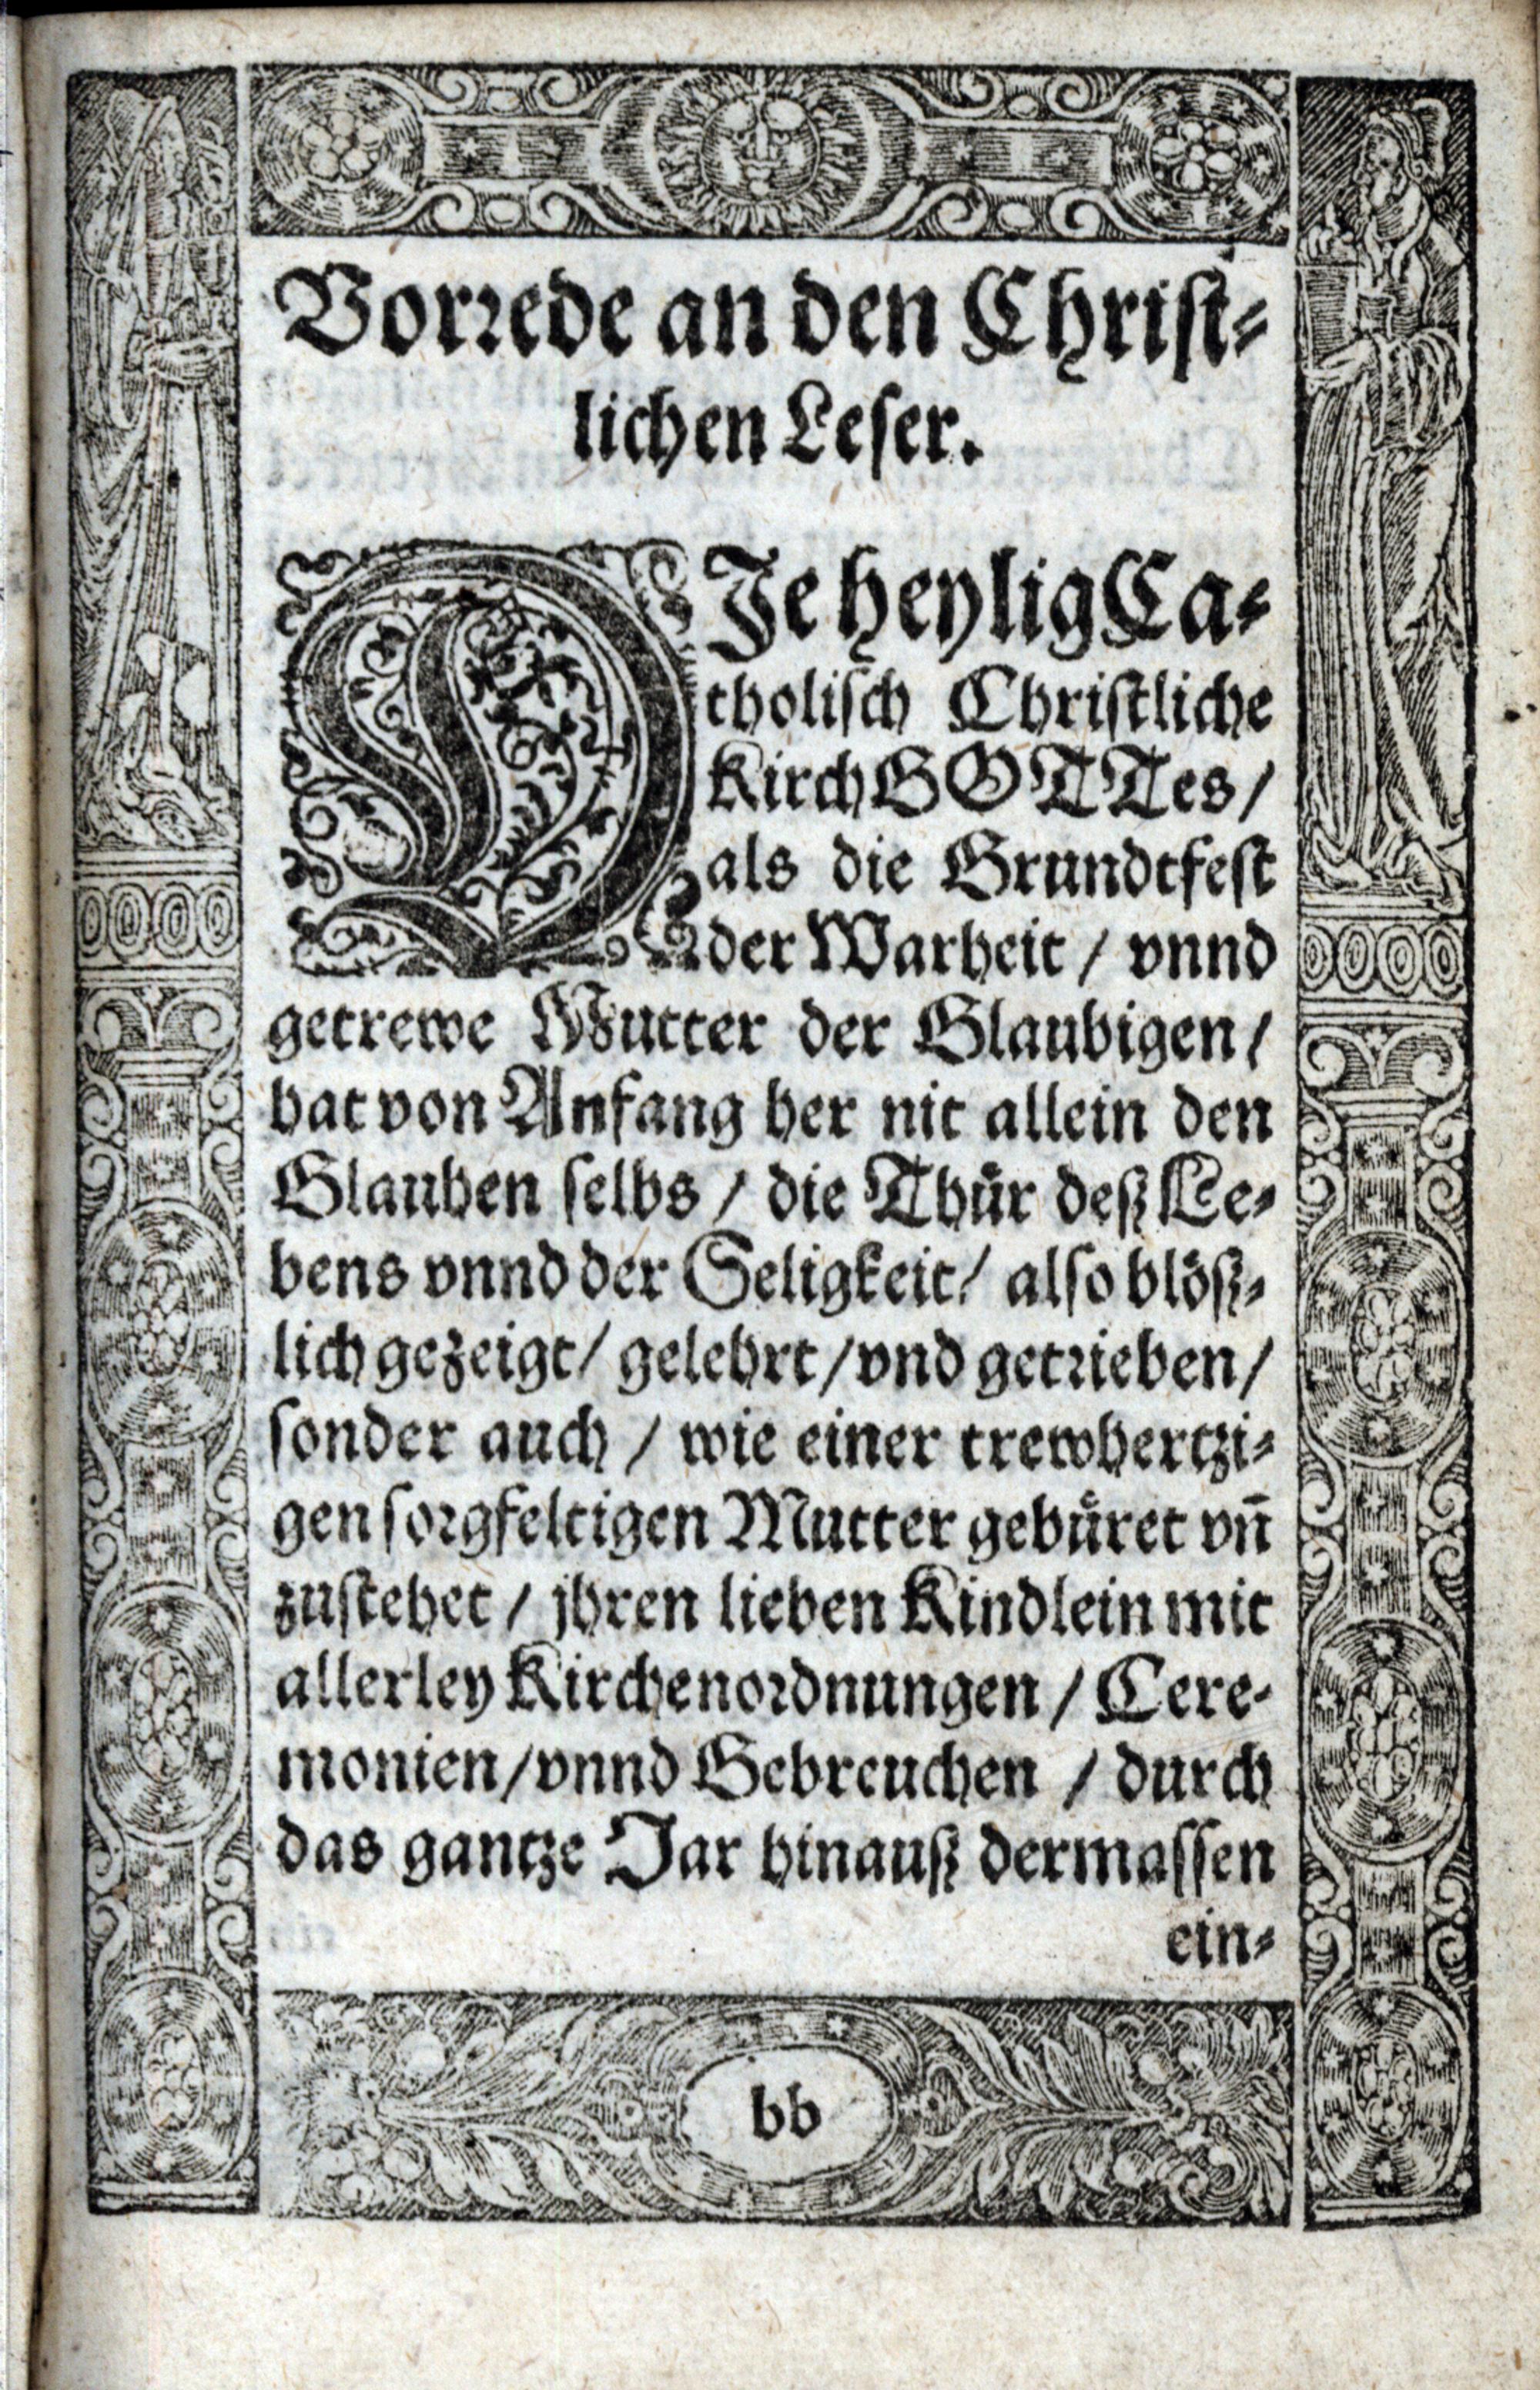 Vorrede an den Christ-
lichen Leser.
DIe heylig Ca-
tholisch Christliche
Kirch GOTTes /
als die Grundtfest
der Warheit / vnnd
getrewe Mutter der Glaubigen /
hat von Anfang her nit allein den
Glauben selbs / die Thuͤr deß Le-
bens vnnd der Seligkeit / also bloͤß-
lich gezeigt / gelehrt / vnd getrieben /
sonder auch / wie einer trewhertzi-
gen sorgfeltigen Mutter gebuͤret vn̄
zustehet / jhren lieben Kindlein mit
allerley Kirchenordnungen / Cere-
monien / vnnd Gebreuchen / durch
das gantze Jar hinauß dermassen
ein-
bb